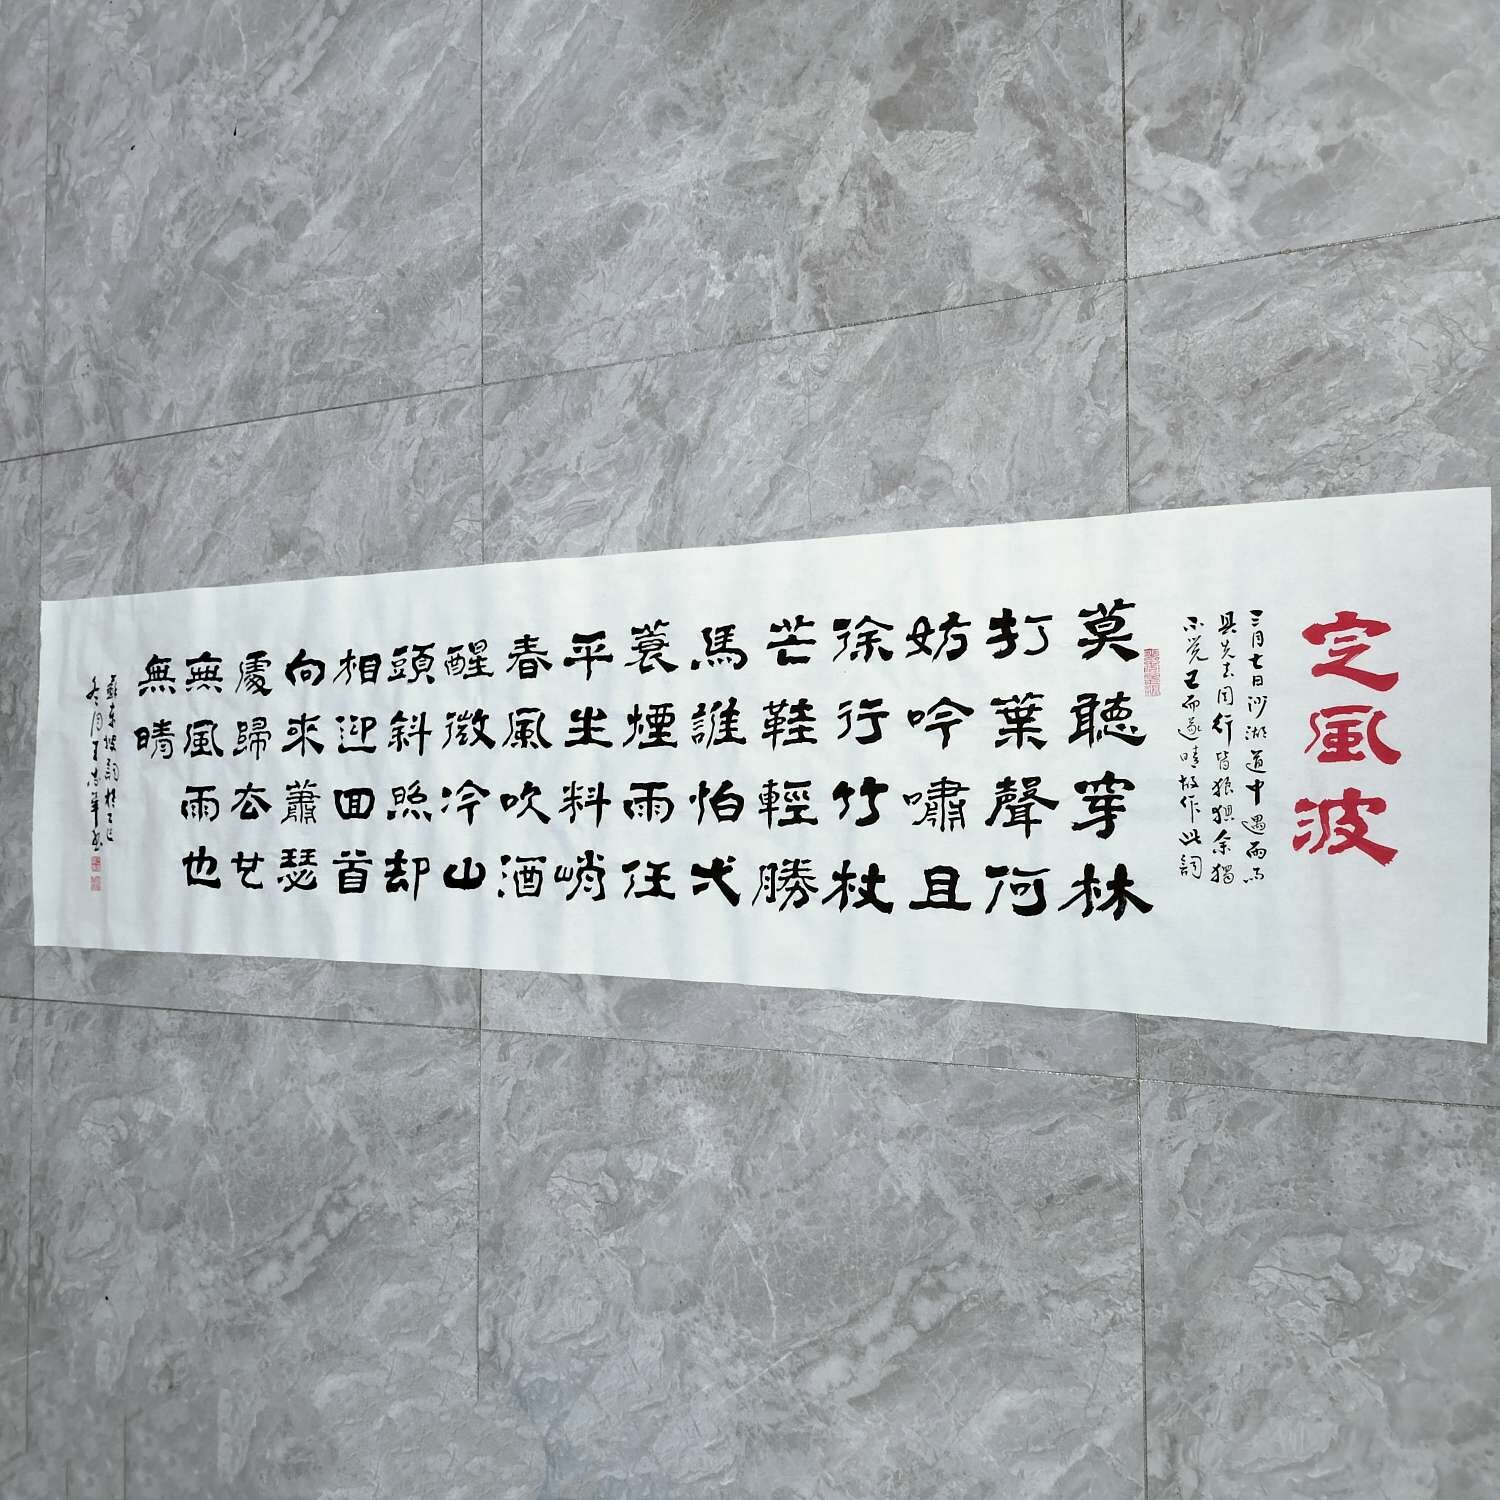 定風波
三月七日沙湖道中遇雨雨
具先去同行皆狼狽余獨
不覺已而遂晴故作此詞
莫聽穿林
打葉聲何
妨吟嘯且
徐行竹杖
芒鞋輕勝
馬誰怕弌
蓑煙雨任
平坐料峭
春風吹酒
醒微冷山
頭斜照却
相迎回首
向來蕭瑟
處歸去也
無風雨也
無晴
蘇東坡詞
冬月王志華書